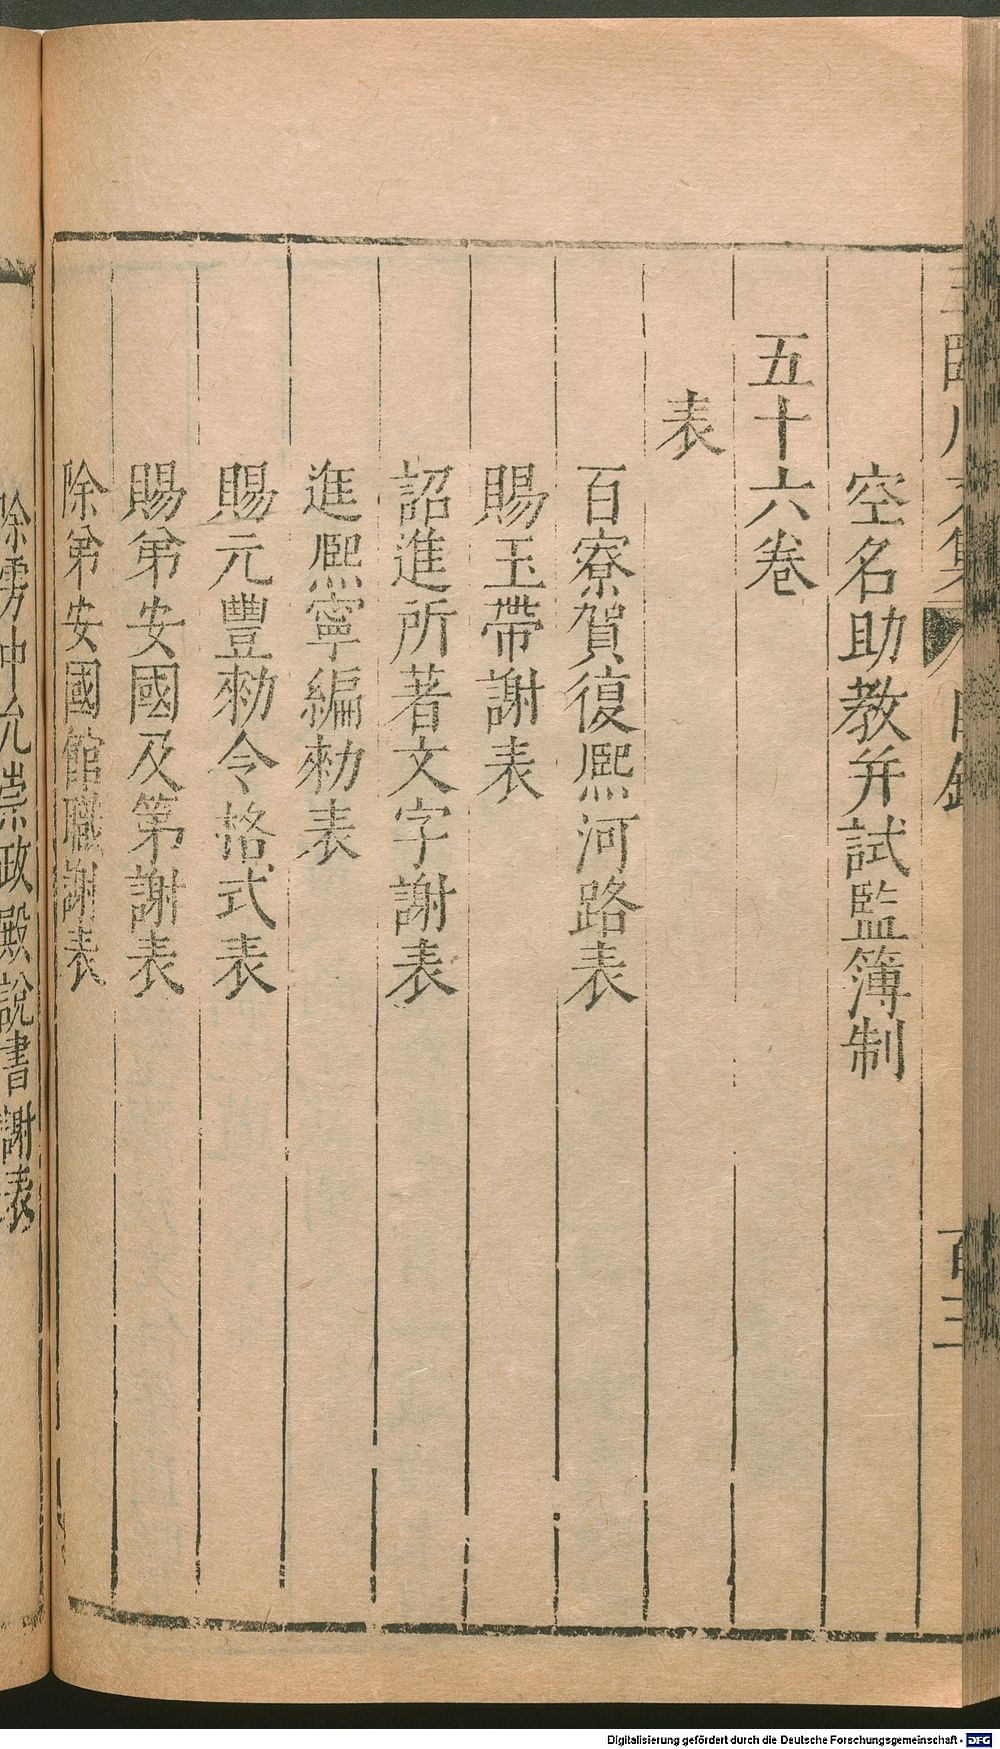 集 目錄
百三
空名助教并試監簿制
五十六卷
表
百寮賀復熙河路表
賜玉帶謝表
詔進所著文字謝表
進熙寧編勑表
賜元豐勑令格式表
賜弟安國及第謝表
除弟安國館職謝表
除雱中允崇政殿說書謝表
Digitalisierung gefördert durch die Deutsche Forschungsgemeinschaft - DFG